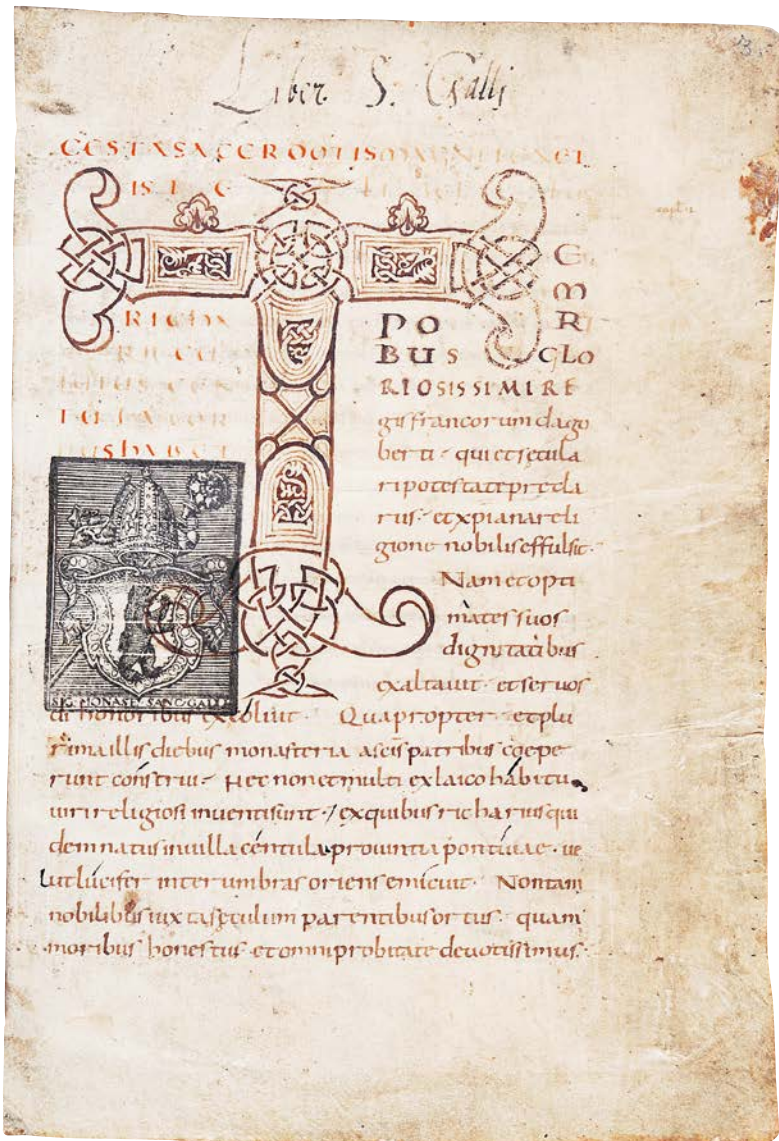 3.
Liber S. Galli
GESTA SACERDOTIS
T
E
M
PO R
BUS GLO
RIOSISSIMI RE
gis francorum dago
berti · qui et secula
ri potestate precla
rus · et xpiana reli
gione nobilis effulsit ·
Nam et opti
mates suos
dignitatibus
exaltauit · et seruos
di honoribus excoluit · Quapropter · et plu
rima illis diebus monasteria a scis patribus cęepe
runt construi · Nec non et multi ex laico habitu
uiri religiosi inuenti sunt · ex quibus richarius qui
dem natus in uilla centula prouintia pontiuae · ue
lut lucifer inter umbras oriens emicuit · Non tam
nobilibus iuxta sęculum parentibus ortus · quam
moribus honestus et omni probitate deuotissimus ·
SIG · MONAST · SANC · GALLI